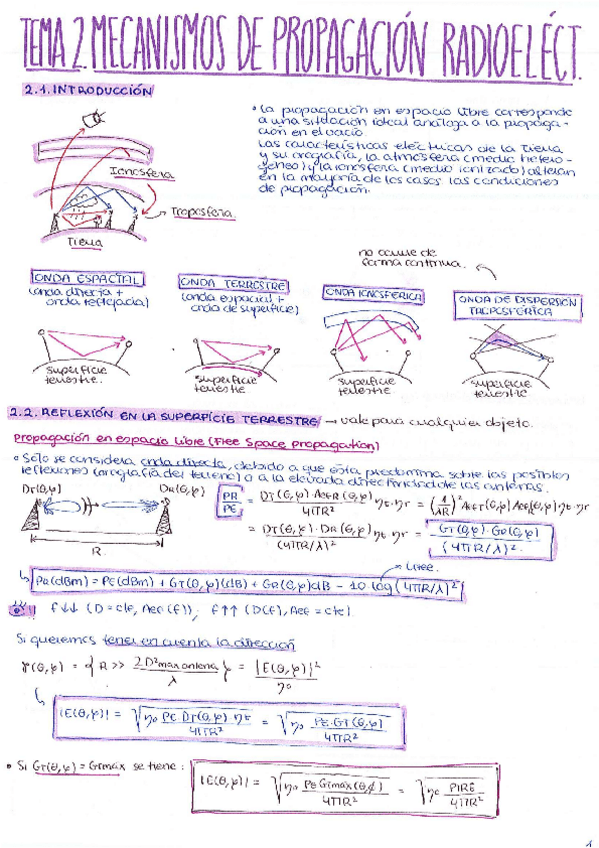 TEMA 2. MECANISMOS DE PROPAGACIÓN RADIOELÉCT.
2.1. INTRODUCCIÓN
• La propagación en espacio libre corresponde
a una situación ideal análoga a la propaga-
ción en el vacío.
Las características eléctricas de la Tierra
y su orografía, la atmósfera (medio hetero-
géneo) y la ionosfera (medio ionizado) alteran
en la mayoría de los casos las condiciones
de propagación.
Ionosfera
Troposfera.
Tierra
no ocurre de
forma continua.
ONDA ESPACIAL
(onda directa +
onda reflejada)
ONDA TERRESTRE
(onda espacial +
onda de superficie)
ONDA IONOSFÉRICA
ONDA DE DISPERSIÓN
TROPOSFÉRICA
superficie
terrestre.
superficie
terrestre
superficie
terrestre
superficie
terrestre
2.2. REFLEXIÓN EN LA SUPERFICIE TERRESTRE → vale para cualquier objeto.
Propagación en espacio libre (Free Space Propagation)
• Sólo se considera onda directa, debido a que ésta predomina sobre las posibles
reflexiones (orografía del terreno) o a la elevada directividad de las antenas.
DT(θ,φ) DR(θ,φ)
R
PR/PE = DT(θ,φ)·Aefr(θ,φ)/4πR² ηt·ηr = (1/λR)² Aeft(θ,φ) Aefr(θ,φ) ηt·ηr
= DT(θ,φ)·DR(θ,φ)/(4πR/λ)² ηt·ηr = GT(θ,φ)·GR(θ,φ)/(4πR/λ)²
PR(dBm) = PE(dBm) + GT(θ,φ)(dB) + GR(θ,φ)dB - 10 log(4πR/λ)²
f↓↓ (D = cte, Aef(f)); f↑↑ (D(f), Aef = cte)
Si queremos tener en cuenta la dirección
(θ,φ) = { R >> 2D²max antena/λ } = |E(θ,φ)|²/η0
|E(θ,φ)| = √(η0 PE·DT(θ,φ)·ηt/4πR²) = √(η0 PE·GT(θ,φ)/4πR²)
• Si GT(θ,φ) = Gtmáx se tiene:
|E(θ,φ)| = √(η0 PE Gtmáx(θ,φ)/4πR²) = √(η0 PIRE/4πR²)